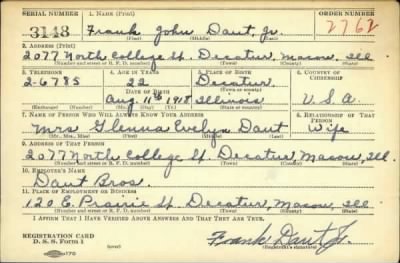 SERIAL NUMBER 1. NAME (Print) ORDER NUMBER
3143 Frank John Daut Jr. 2762
(First) (Middle) (Last)
2. ADDRESS (Print)
2077 North College St. Decatur, Macon, Ill
(Number and street or R. F. D. number) (Town) (County) (State)
3. TELEPHONE 4. AGE IN YEARS 5. PLACE OF BIRTH 6. COUNTRY OF CITIZENSHIP
2-6785 22 Decatur
DATE OF BIRTH (Town or county)
Aug. 11th 1918 Illinois U.S.A.
(Exchange) (Number) (Mo.) (Day) (Yr.) (State or country)
7. NAME OF PERSON WHO WILL ALWAYS KNOW YOUR ADDRESS 8. RELATIONSHIP OF THAT PERSON
Mrs Glenna Evelyn Daut Wife
(Mr., Mrs., Miss) (First) (Middle) (Last)
9. ADDRESS OF THAT PERSON
2077 North College St. Decatur Macon, Ill.
(Number and street or R. F. D. number) (Town) (County) (State)
10. EMPLOYER'S NAME
Daut Bros.
11. PLACE OF EMPLOYMENT OR BUSINESS
120 E. Prairie St. Decatur, Macon, Ill
(Number and street or R. F. D. number) (Town) (County) (State)
I AFFIRM THAT I HAVE VERIFIED ABOVE ANSWERS AND THAT THEY ARE TRUE.
REGISTRATION CARD
D. S. S. Form 1 Frank Daut Jr.
(Registrant's signature)